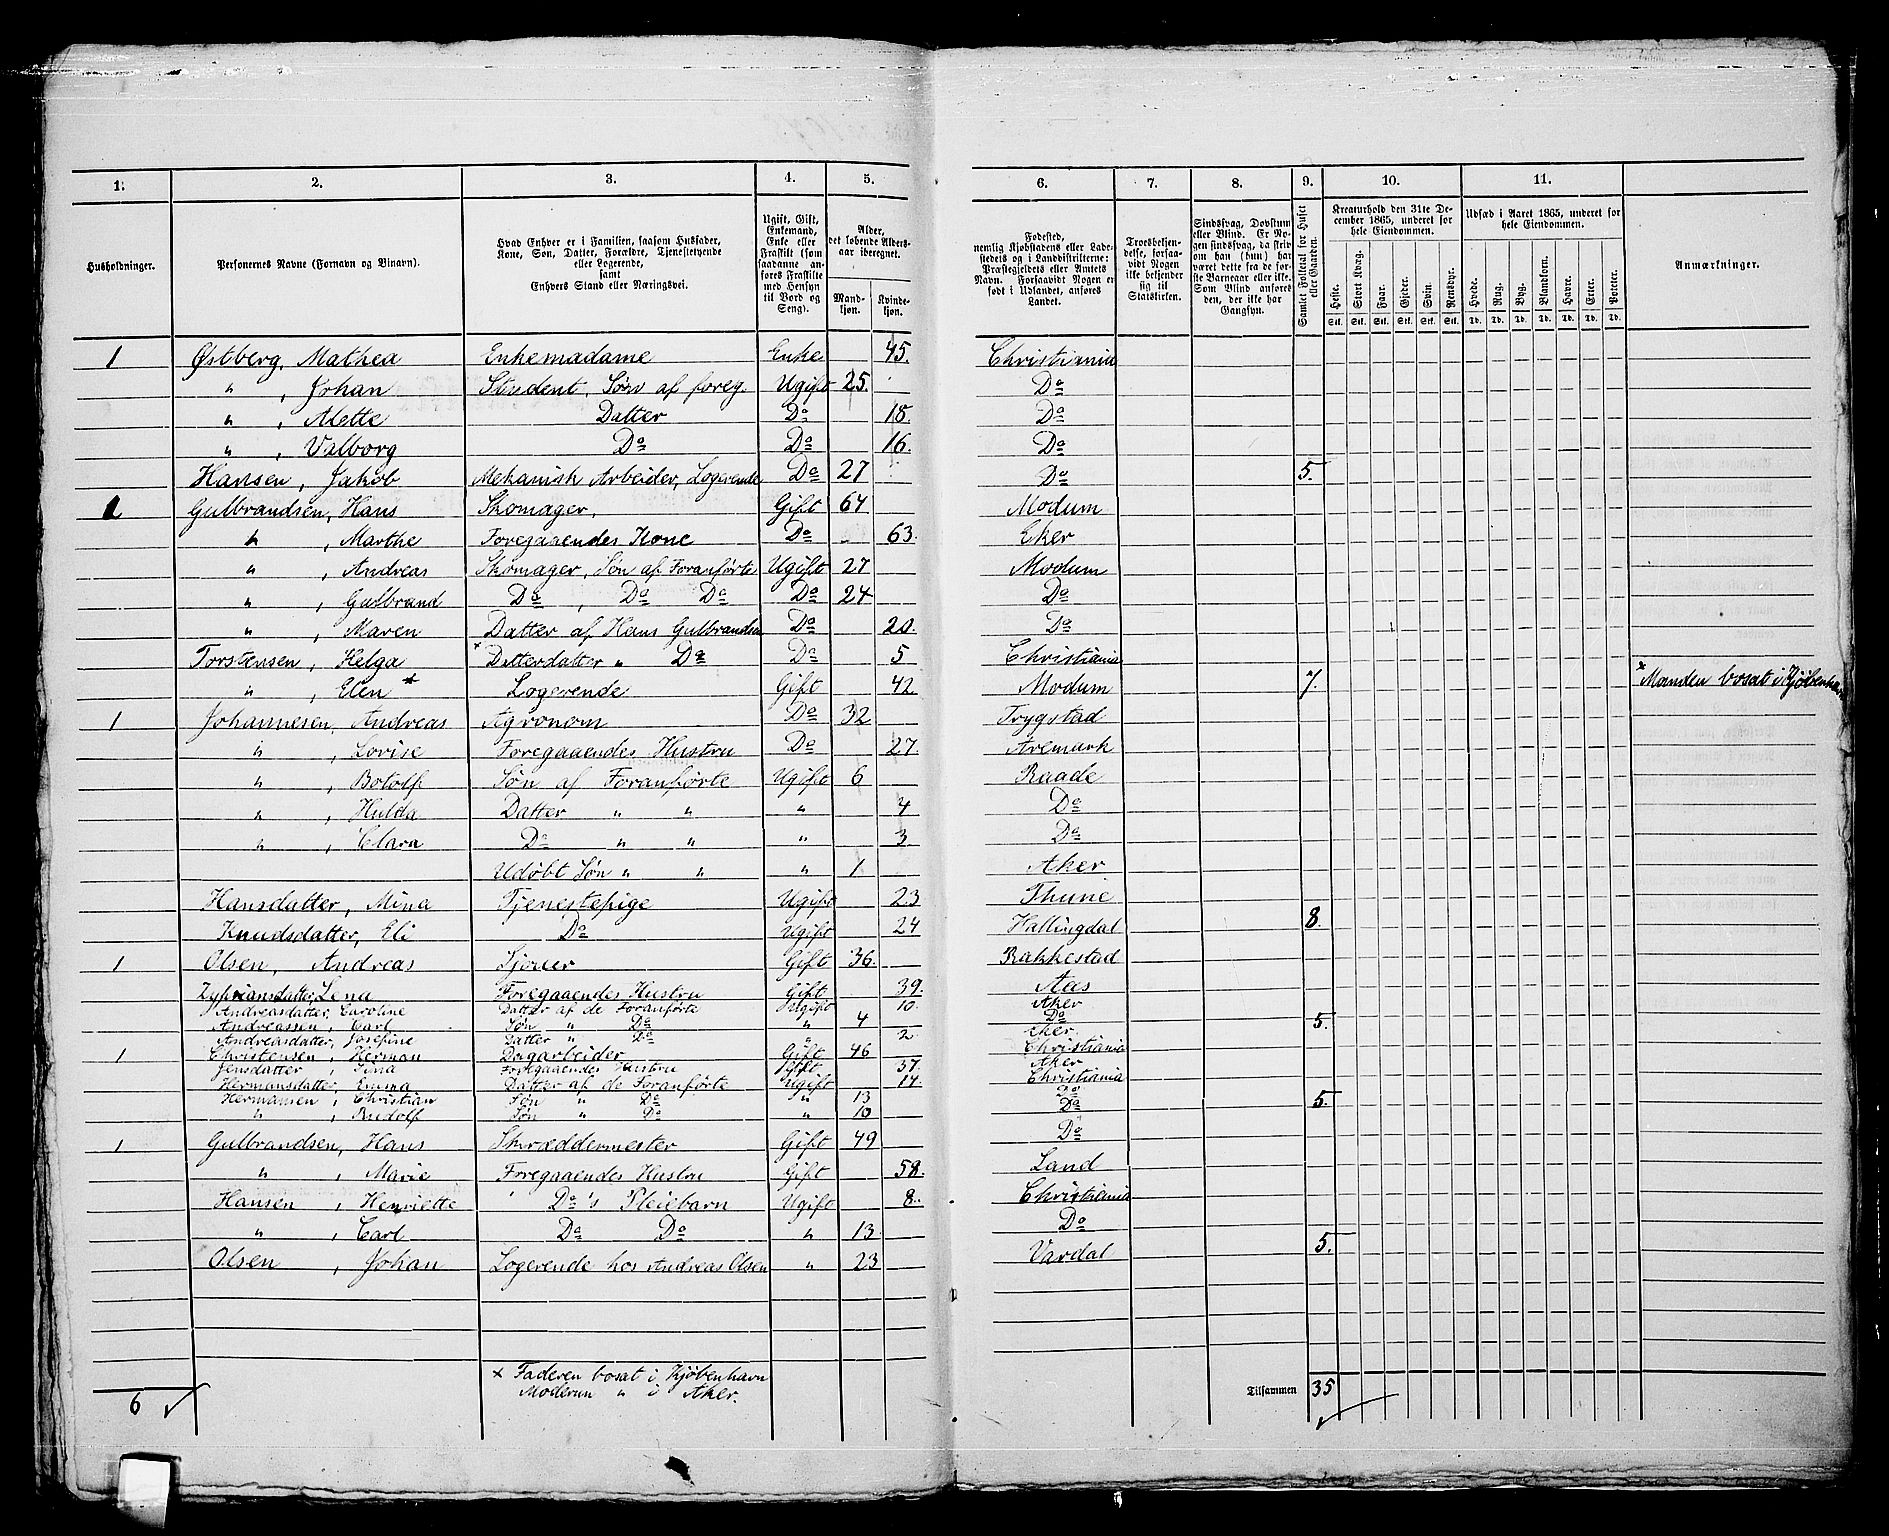 1. 2. 3. 4. 5. 6. 7. 8. 9. 10. 11.
Husholdninger.
Personernes Navne (Fornavn og Tilnavn).
Hvad Enhver er i Familien, saasom Husfader, Kone, Søn, Datter, Forældre, Tjenestetyende eller Logerende, samt Enhvers Stand eller Næringsvei.
Ugift, Gift, Enkemand, Enke eller Fraskilt (som saadanne anføres Fraskilte med Hensyn til Bord og Seng).
Alder, det løbende Aldersaar iberegnet.
Mandkjøn. Kvindekjøn.
Fødested, nemlig Kjøbstadens eller Ladestedets og i Landdistrikterne: Præstegjeldets eller Amtets Navn. Forsaavidt Nogen er født i Udlandet, anføres Landet.
Troesbekjendelse, forsaavidt Nogen ikke bekjender sig til Statskirken.
Sindssvag, Døvstum eller Blind. Er Nogen sindssvag, da skrives om han (hun) har været dette fra de første Barneaar eller ikke. Som Blind anføres den, der ikke har Gangsyn.
Samlet Folketal for Huset eller Gaarden.
Kreaturhold den 31te December 1865, underet for hele Eiendommen.
Heste. Stort Kvæg. Faar. Gjeder. Svin. Rensdyr.
Udsæd i Aaret 1865, underet for hele Eiendommen.
Hvede. Rug. Byg. Blandkorn. Havre. Erter. Poteter.
Stk. Stk. Stk. Stk. Stk. Stk. Td. Td. Td. Td. Td. Td. Td.
Anmærkninger.
1 Østberg, Mathea Enkemadame Enke 45. Christiania
" , Johan Student, Søn af foreg. Ugift 25. Do
" , Mette Datter Do 18. Do
" , Valborg Do Do 16. Do
Hansen, Jakob Mekanisk Arbeider, Logerende Do 27 Do 5.
1 Gulbrandsen, Hans Skomager. Gift 64 Modum
" , Marthe Foregaaendes Kone Do 63. Eker
" , Andreas Skomager, Søn af Foranførte Ugift 27 Modum
" , Gulbrand Do , Do Do Do 24 Do
" , Maren Datter af Hans Gulbrandsen Do 20. Do
Torstensen, Helga * Datterdatter " Do Do 5 Christiania
" , Elen * Logerende Gift 42. Modum 7. * Manden bosat i Kjøbenhavn
1 Johannesen, Andreas Agronom Do 32 Trygstad
" , Lovise Foregaaendes Hustru Do 27. Aremark
" , Botolf Søn af Foranførte Ugift 6 Raade
" , Hulda Datter " " " 4 Do
" , Clara Do " " " 3 Do
Udøbt Søn " " " 1 Aker
Hansdatter, Mina Tjenestepige Ugift 23 Thune
Knudsdatter, Eli Do Ugift 24 Hallingdal 8.
1 Olsen, Andreas Sjouer Gift 36. Rakkestad
Zypriansdatter, Lena Foregaaendes Hustru Gift 39. Aas
Andreasdatter, Caroline Datter af de Foranførte Ugift 10. Aker
Andreassen, Carl Søn " Do " 4 Do 5.
Andreasdatter, Josefine Datter " Do " 2 Eker.
1 Christensen, Herman Dagarbeider Gift 46 Christiania
Jensdatter, Sina Foregaaendes Hustru Gift 37. Aker
Hermansdatter, Emma Datter af de Foranførte Ugift 14. Christiania
Hermansen, Christian Søn " Do " 13 Do
" , Rudolf Søn " Do " 10 Do 5.
1 Gulbrandsen, Hans Skræddermester Gift 49 Do
" , Marie Foregaaendes Hustru Gift 58. Land
Hansen , Henriette Do's Pleiebarn Ugift 8. Christiania
" , Carl Do Do " 13. Do
Olsen , Johan Logerende hos Andreas Olsen " 23 Vardal 5.
* Faderen bosat i Kjøbenhavn
Moderen " i Aker.
6
Tilsammen 35